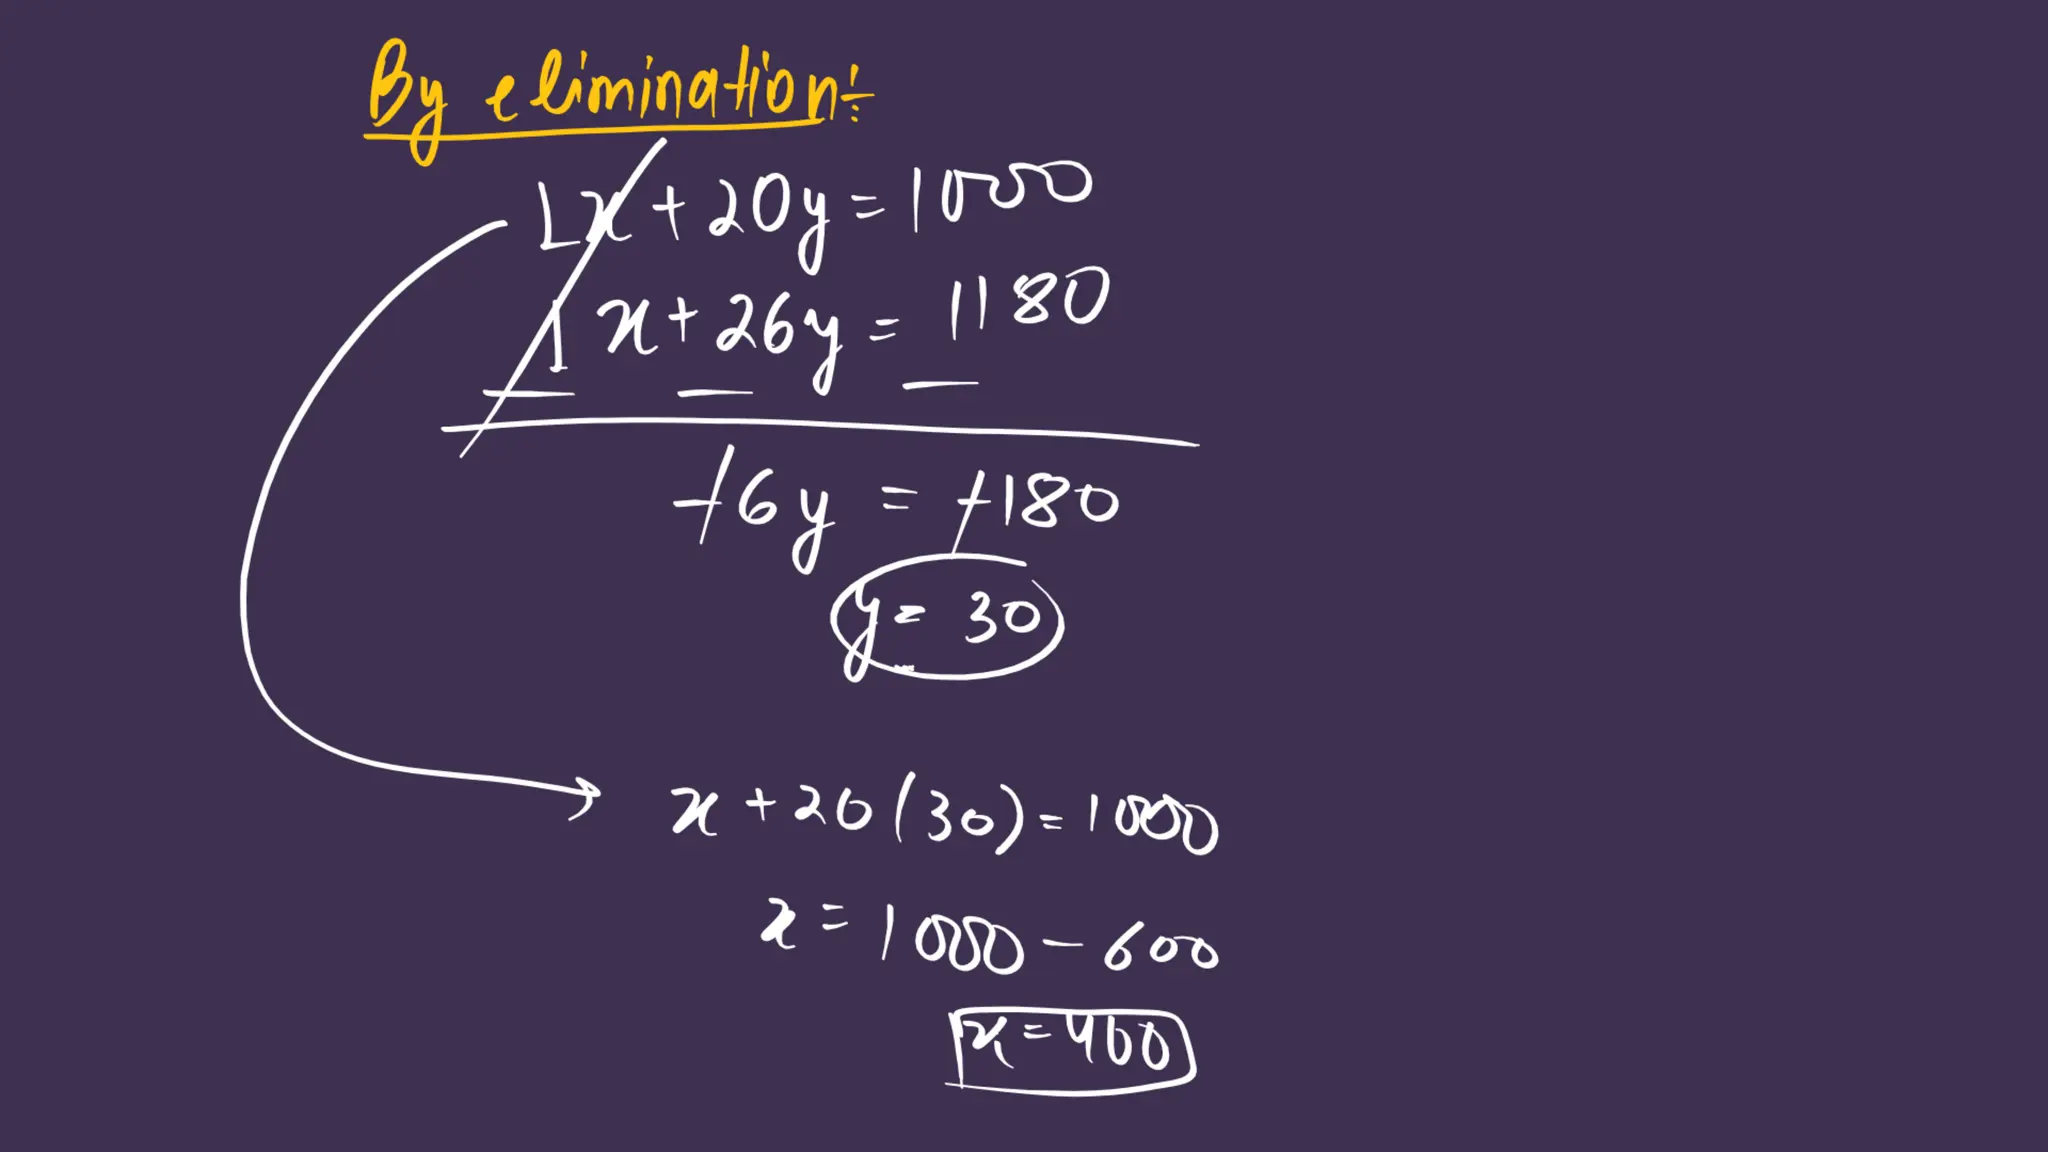 By elimination:-
1x + 20y = 1000
1x + 26y = 1180
— — —
-6y = -180
y = 30
x + 20(30) = 1000
x = 1000 - 600
x = 400